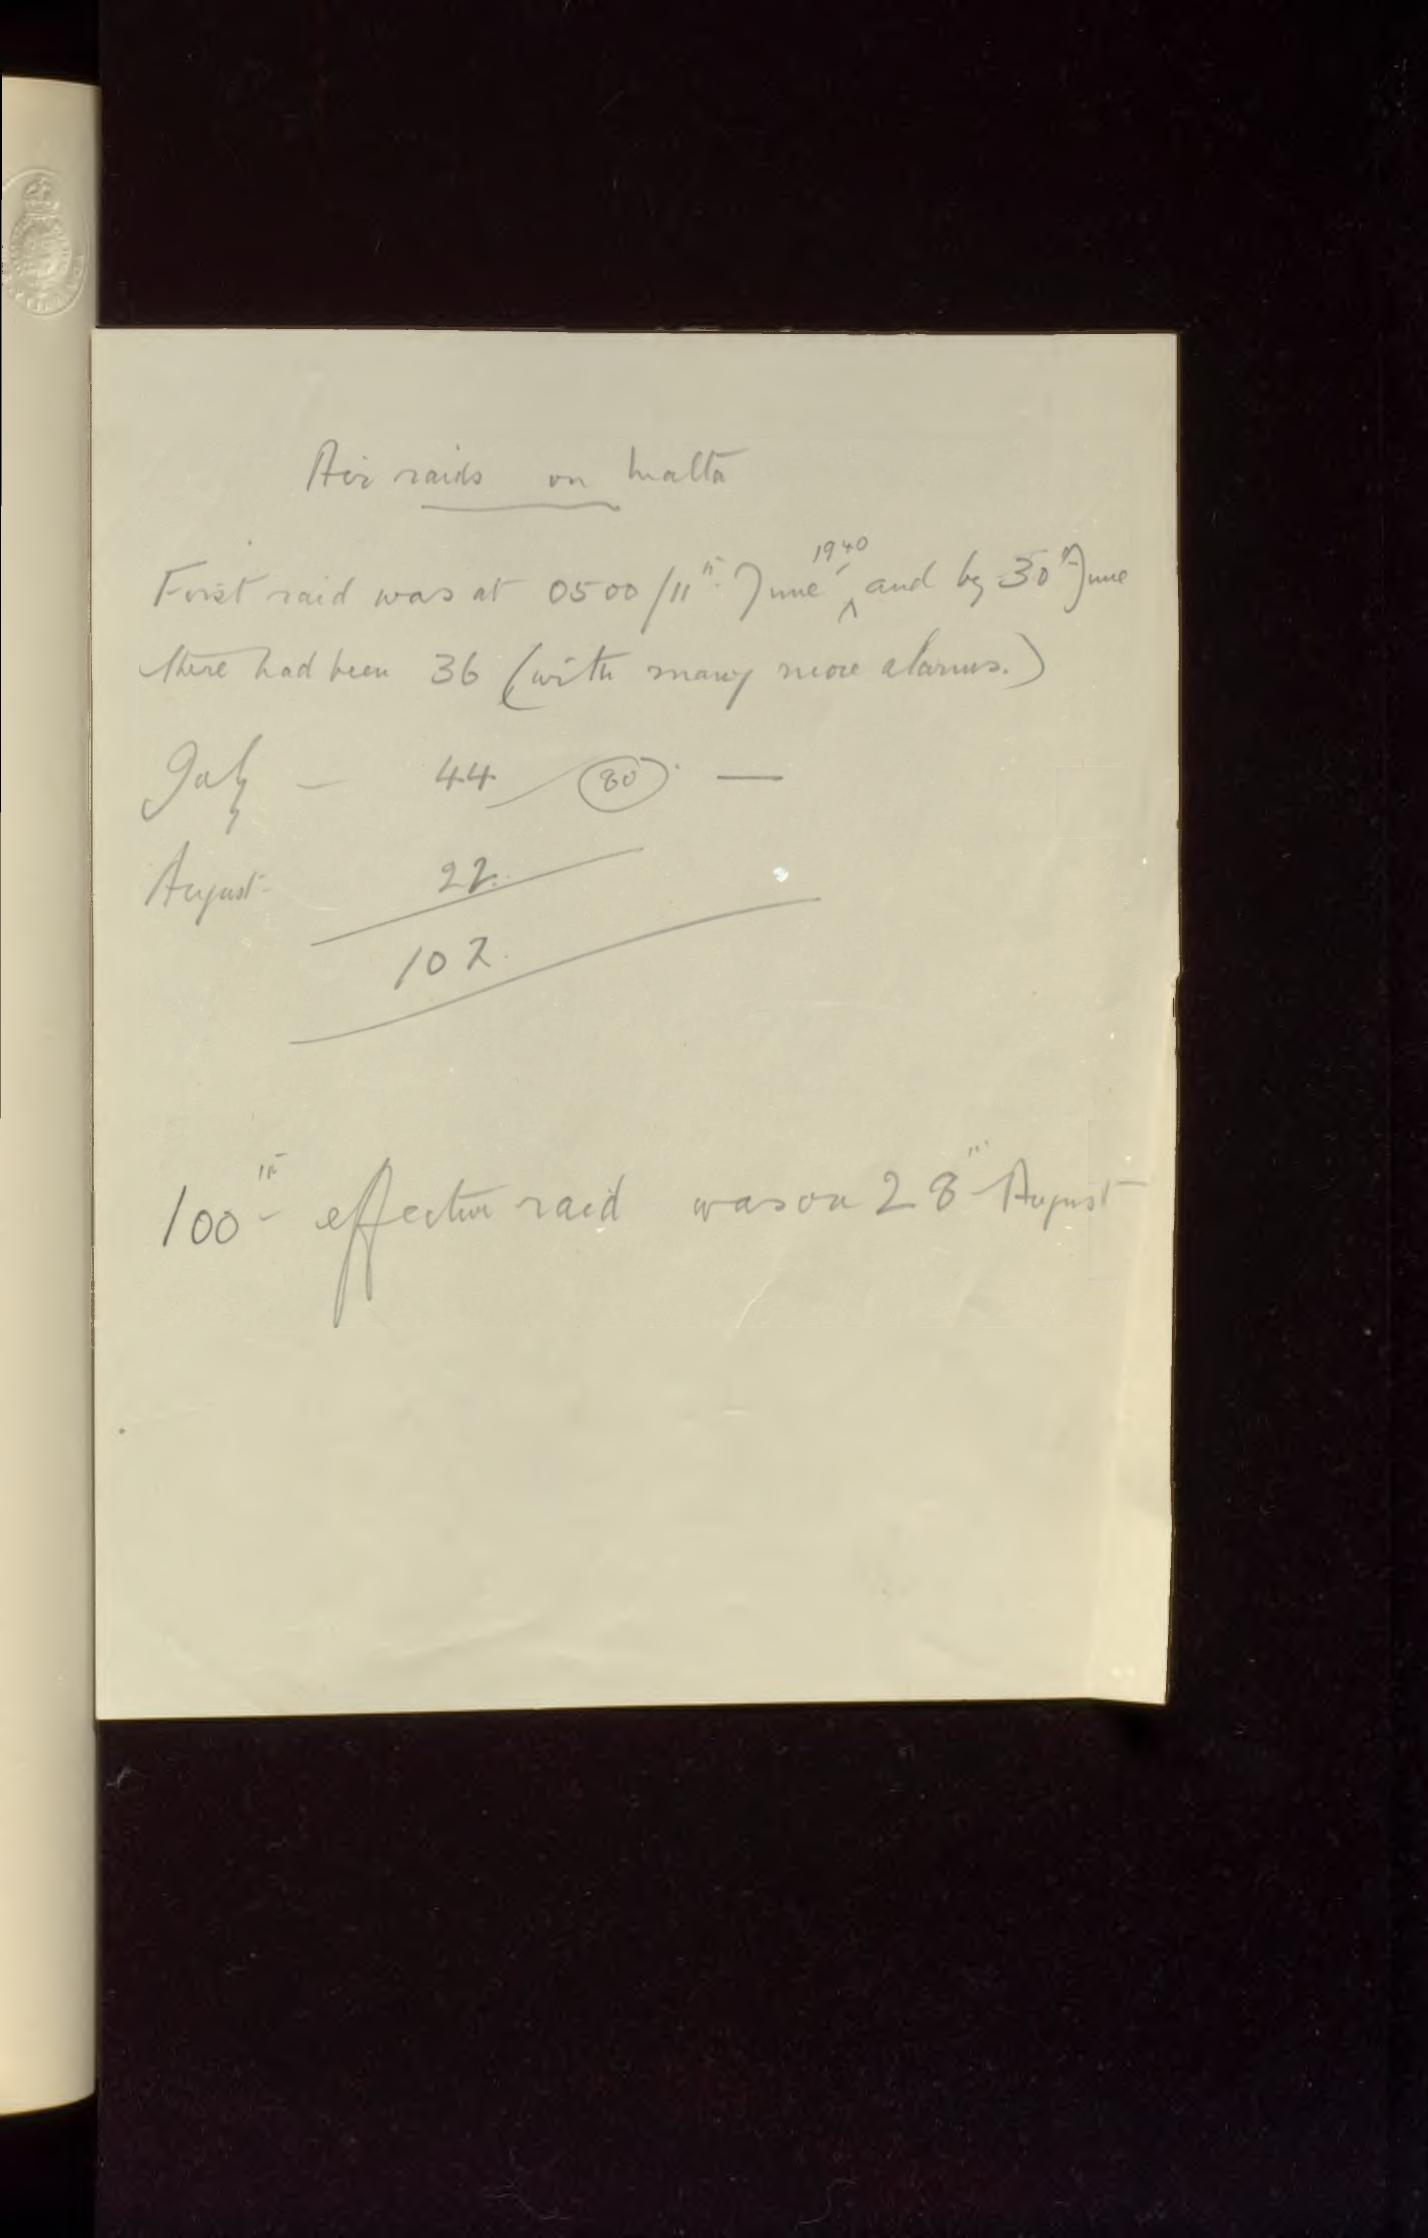 Air raids on Malta
First raid was at 0500/11th June, 1940 and by 30th June
there had been 36 (with many more alarms.)
July — 44 (80) —
August 22.
102.
100th effective raid was on 28th August